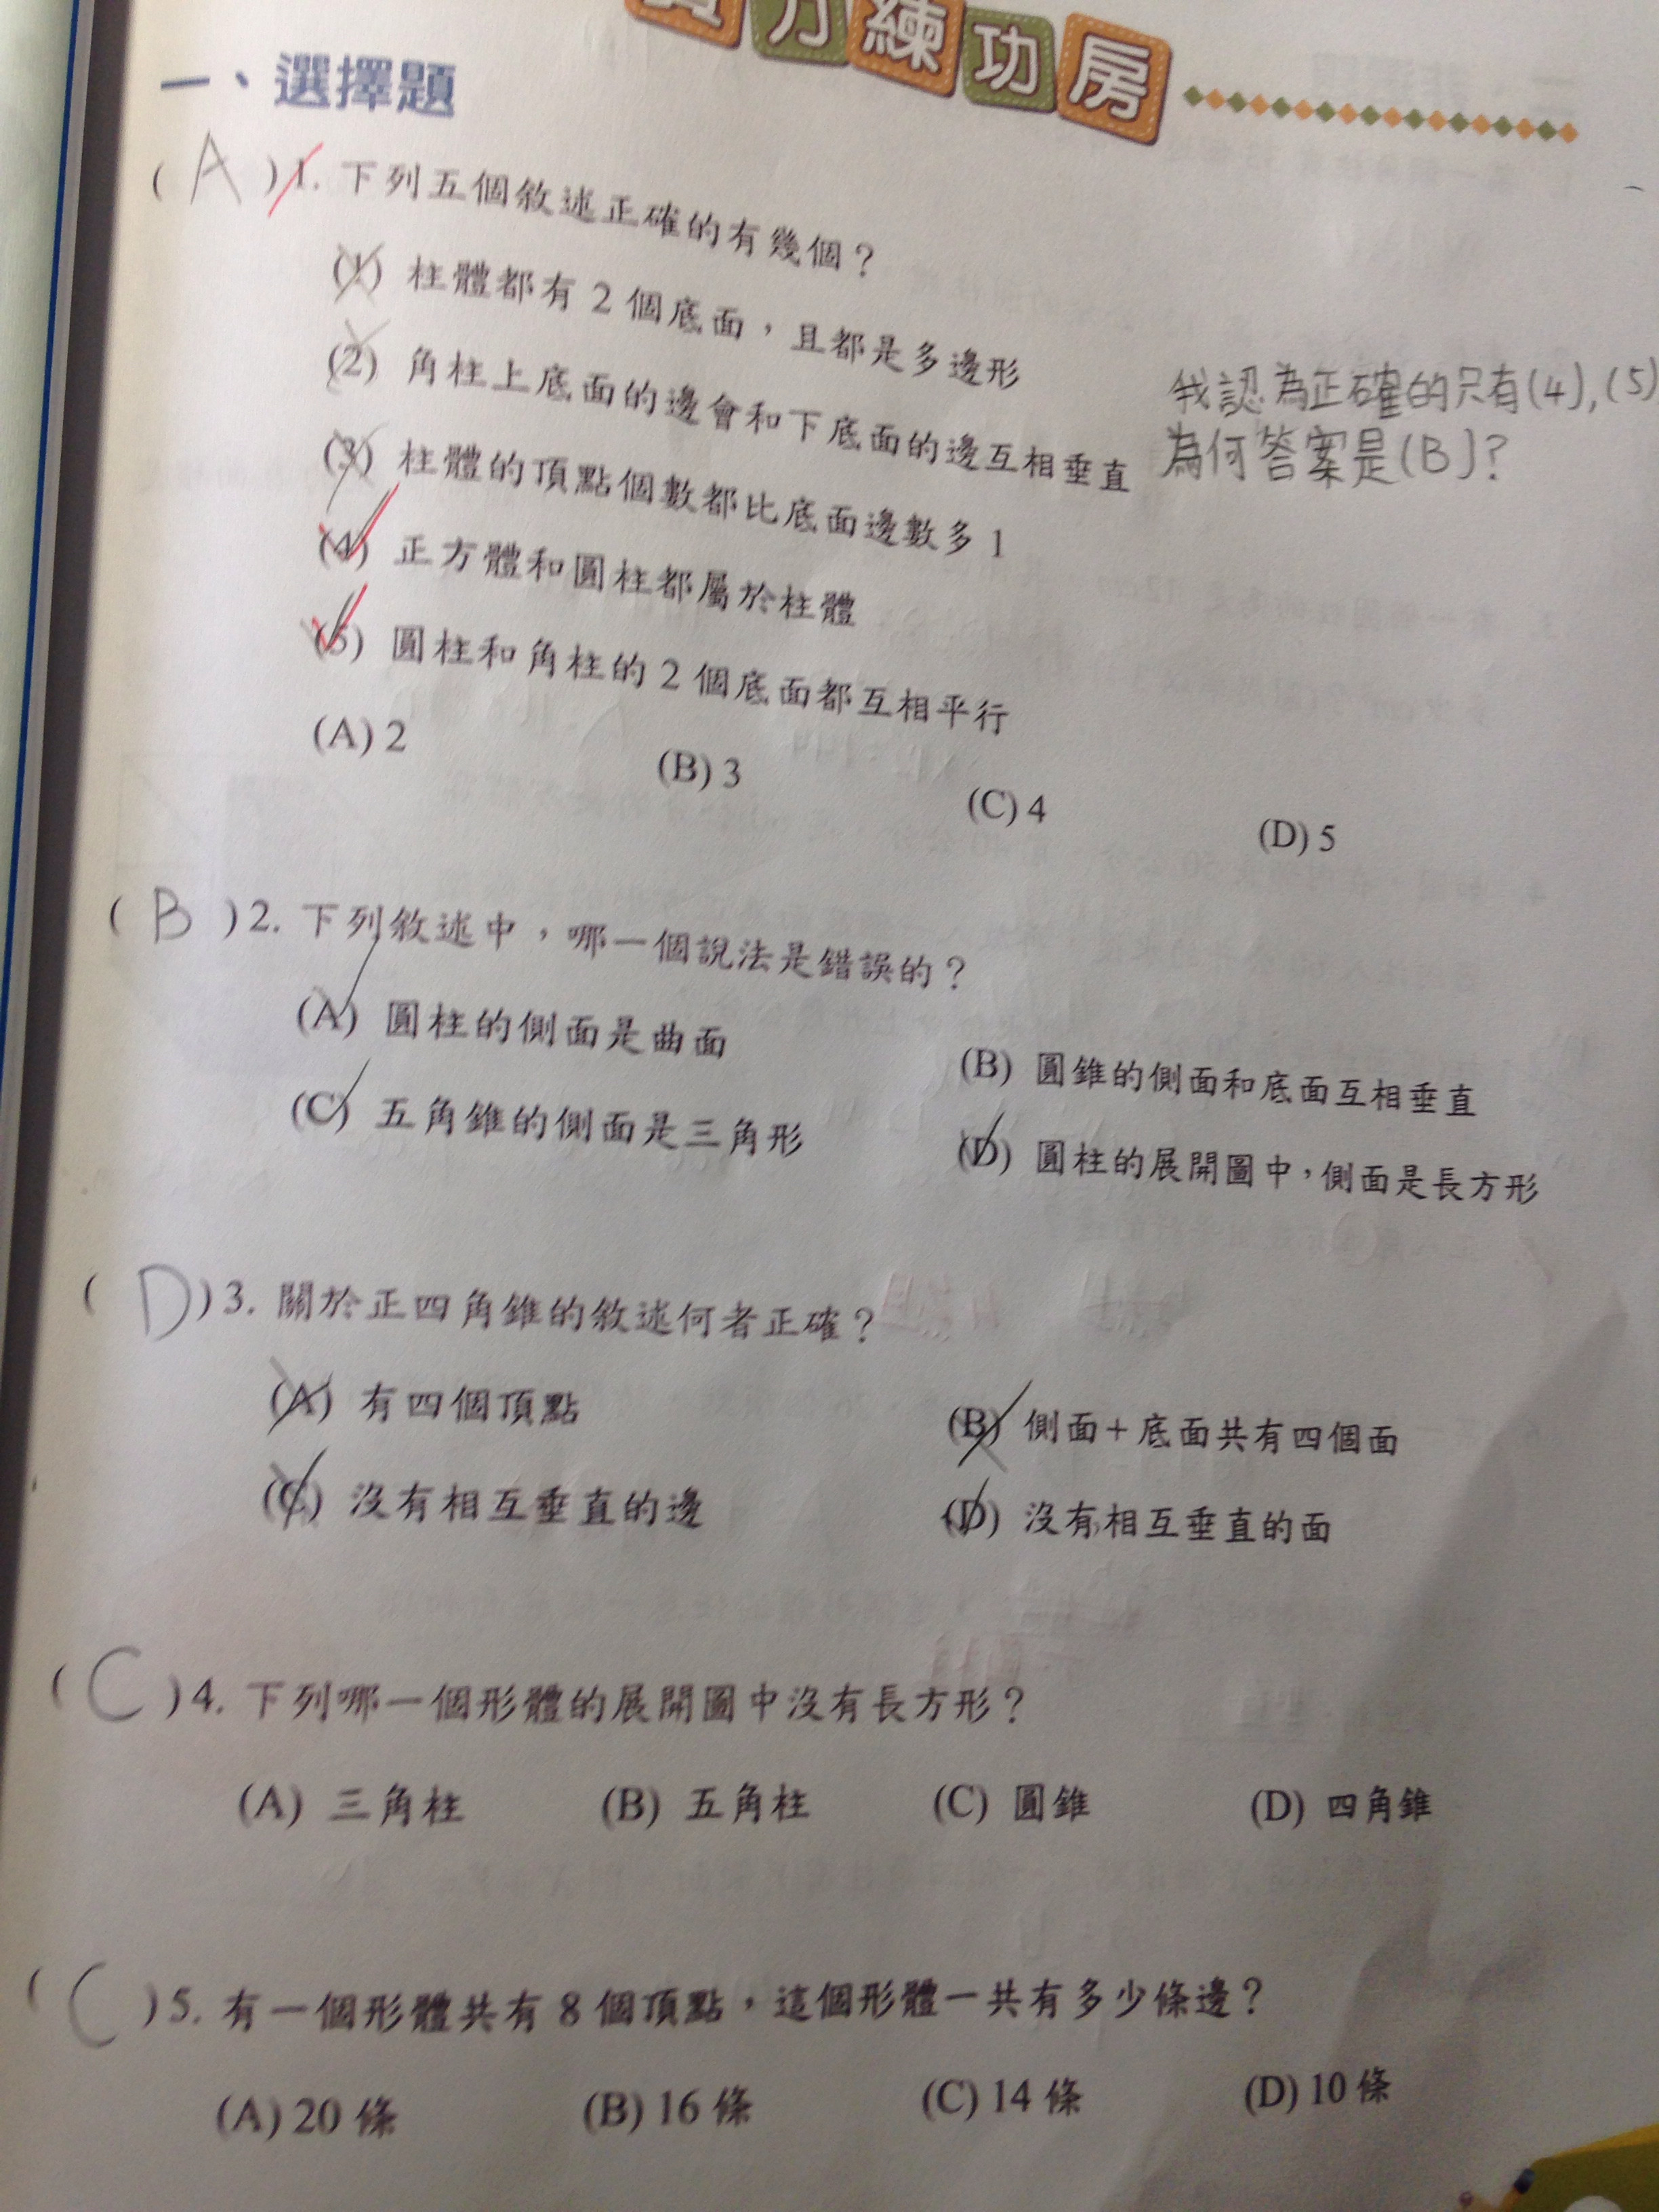 力練功房
一、選擇題
( A ) 1. 下列五個敘述正確的有幾個？
(1) 柱體都有 2 個底面，且都是多邊形
(2) 角柱上底面的邊會和下底面的邊互相垂直
(3) 柱體的頂點個數都比底面邊數多 1
(4) 正方體和圓柱都屬於柱體
(5) 圓柱和角柱的 2 個底面都互相平行
我認為正確的只有(4),(5)
為何答案是(B)?
(A) 2 (B) 3 (C) 4 (D) 5
( B ) 2. 下列敘述中，哪一個說法是錯誤的？
(A) 圓柱的側面是曲面 (B) 圓錐的側面和底面互相垂直
(C) 五角錐的側面是三角形 (D) 圓柱的展開圖中，側面是長方形
( D ) 3. 關於正四角錐的敘述何者正確？
(A) 有四個頂點 (B) 側面＋底面共有四個面
(C) 沒有相互垂直的邊 (D) 沒有相互垂直的面
( C ) 4. 下列哪一個形體的展開圖中沒有長方形？
(A) 三角柱 (B) 五角柱 (C) 圓錐 (D) 四角錐
( C ) 5. 有一個形體共有 8 個頂點，這個形體一共有多少條邊？
(A) 20 條 (B) 16 條 (C) 14 條 (D) 10 條